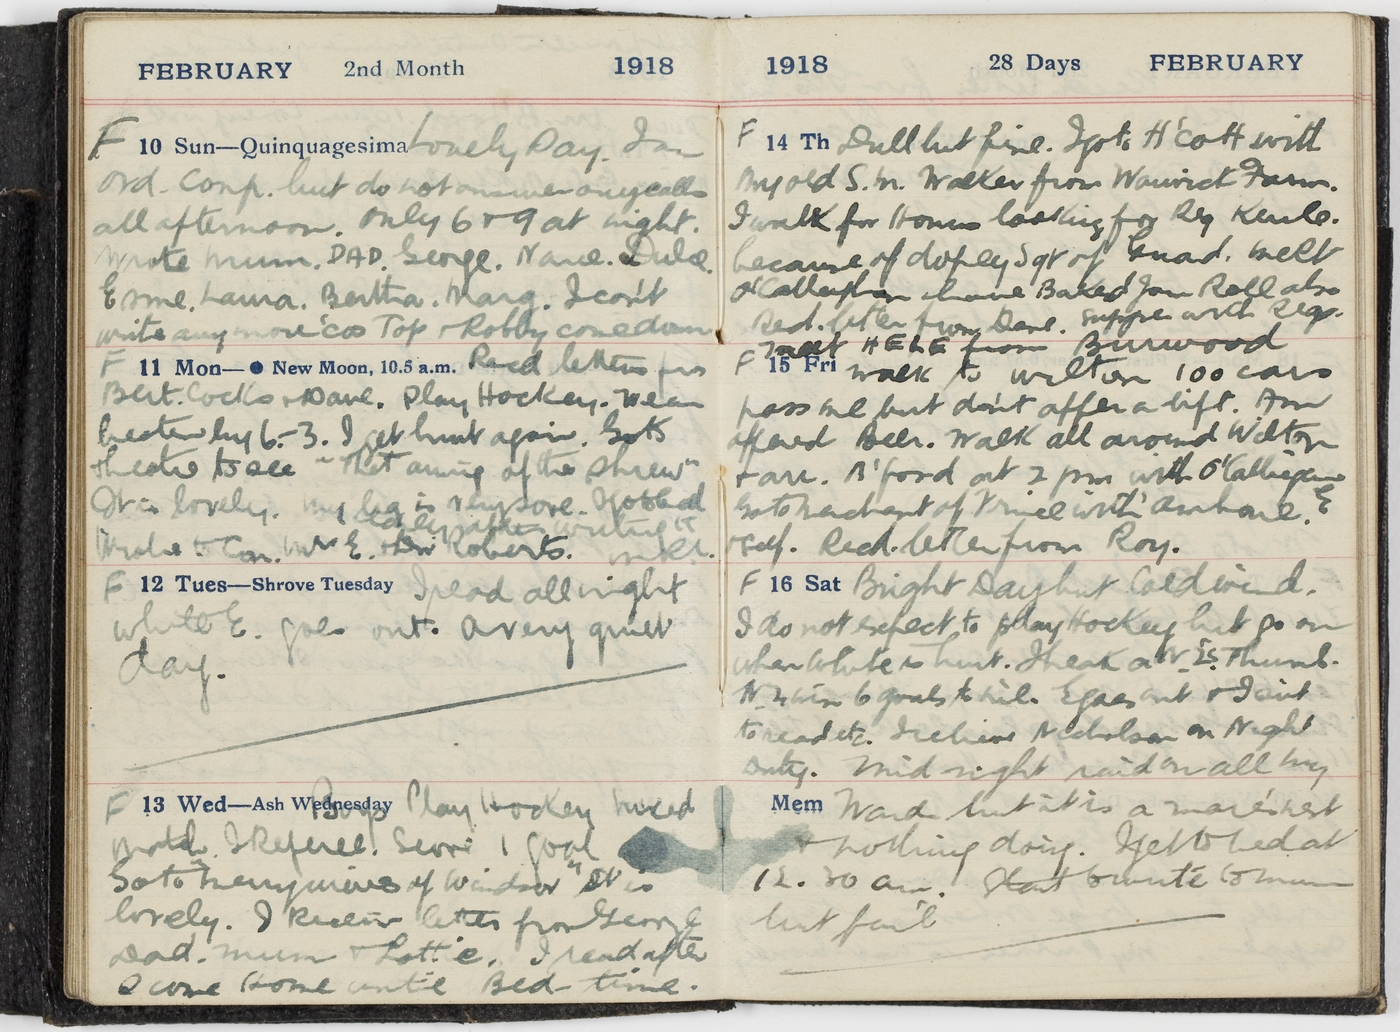 FEBRUARY 2nd Month 1918
F 10 Sun—Quinquagesima Lovely Day. I am
ord. Corp. but do not answer any calls
all afternoon. Only 6 & 9 at night.
Wrote Mum. DAD. George. Nance. Dulce.
Esme. Laura. Bertha. Marg. I can't
write any more 'cos Top & Robby come down
F 11 Mon— ● New Moon, 10.5 a.m. Recd letters from
Bert. Cocks & Dave. Play Hockey. We are
beaten by 6-3. I get hurt again. Go to
theatre to see "The Taming of the Shrew"
It is lovely. My leg is very sore.
Wrote to Con. Mrs E. Roberts.
F 12 Tues—Shrove Tuesday I read all night
while E. goes out. A very quiet
day.
F 13 Wed—Ash Wednesday Boys Play Hockey mixed
match. I Referee. Score 1 goal
Go to "Merry wives of Windsor" It is
lovely. I Receive letters from George
Dad. Mum & Lottie. I read after
I come Home until Bed-time.
1918 28 Days FEBRUARY
F 14 Th Dull but fine. I go to H'cott with
my old S.M. Walker from Warwick Farm.
I walk for Hours looking for Reg Keeble.
because of dopey Sgt of Guard. Meet
O'Callaghan & have Baked Jam Roll also
Recd. letter from Dave. Supper with Reg.
meet HELE from Burwood
F 15 Fri walk to Wilton 100 cars
pass me but don't offer a lift. Am
offered Beer. Walk all around Wilton
& arr. B'ford at 2 pm with O'Callaghan
Go to Merchant of Venice with E
& self. Recd. letter from Roy.
F 16 Sat Bright Day but Cold wind.
I do not expect to play Hockey but go on
when White is hurt. I break a Thumb.
win 6 goals to nil. E goes out & I sit
to read etc. I relieve Nicholson on Night
Duty. Mid-night raid on all my
Mem Ward but it is a mare's nest
& nothing doing. I get to bed at
12.30 am. Start to write to mum
but fail